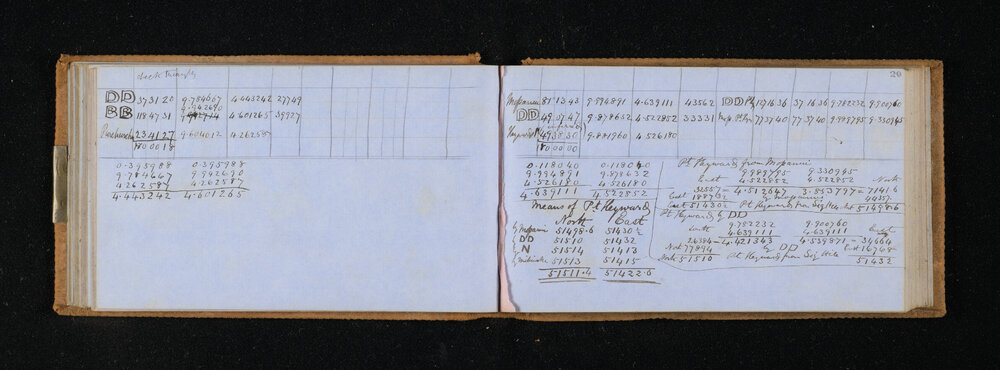 check triangle
DD 37 31 20 9.784667 4.443242 27749
BB 118 47 31 9.942690 4.601265 39927
23 41 27 9.604012 4.262587
180 00 18
0.395988 0.395988
9.784667 9.942690
4.262587 4.262587
4.443242 4.601265
20
Mopani 81 13 43 9.994891 4.639111 43562 DD 127 16 36 37 16 36 9.782232 9.900760
DD 49 07 47 9.878632 4.522852 33331 77 37 40 77 37 40 9.989795 9.330985
49 38 30 9.881960 4.526180
180 00 00
0.118040 0.118040
9.994891 9.878632
4.526180 4.526180
4.639111 4.522852
Means of Pt Heyward
North East
by Mopani 51498.6 51430½
by DD 51510 51432
by N 51514 51413
by 51513 51415
51511.4 51422.6
Pt Heyward from Mopani
9.989795 9.330985
East 4.522852 4.522852 North
32557 = 4.512647 3.853797 = 7141.6
East by Mopani 44357
East 51430½ Pt Heyward from Sig Hill 51498.6
Pt Heyward by DD
9.782232 9.900760
South 4.639111 4.639111 East
26384 = 4.421343 4.539871 = 34664
North 77894 by DD East 16748
North 51510 Pt Heyward from Sig Hill 51432